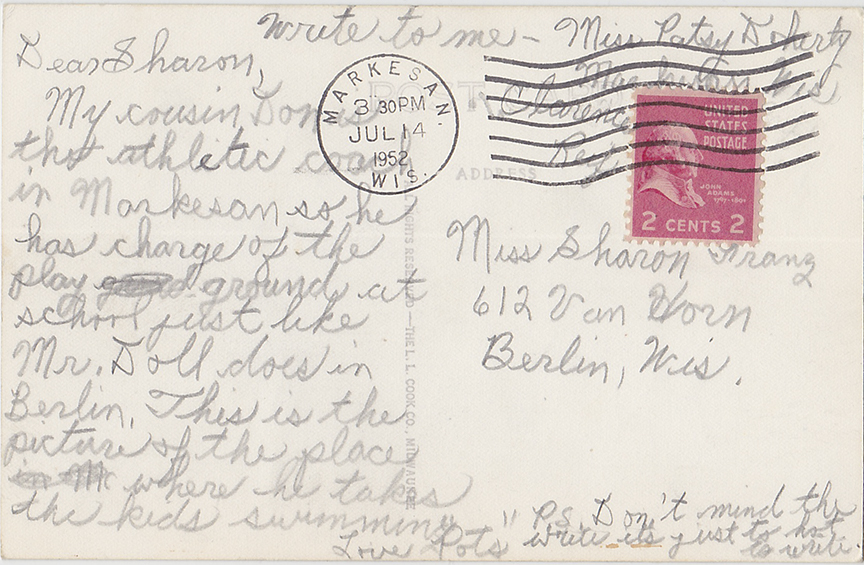 Write to me - Miss Patsy Doherty
Wis
Clarence
Dear Sharon,
My cousin Don is
tho athletic coach
in Markesan so he
has charge of the
play ground at
school just like
Mr. Doll does in
Berlin. This is the
picture of the place
where he takes
the kids swimming
Love "Pots"
P.S. Don't mind the
write it's just to hot
to write.
MARKESAN.
3 30PM
JUL 14
1952
WIS.
UNITED
STATES
POSTAGE
JOHN
ADAMS
1797-1801
2 CENTS 2
POST
ADDRESS
Miss Sharon Franz
612 Van Horn
Berlin, Wis.
ALL RIGHTS RESERVED —THE L. L. COOK CO., MILWAUKEE